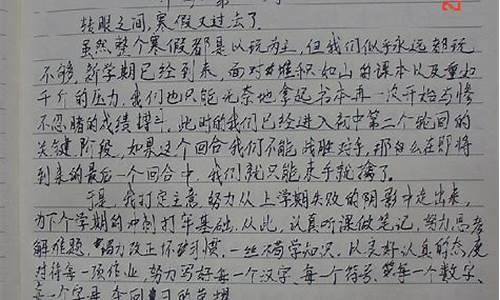 转眼之间,寒假又过去了。
虽然整个寒假都是以玩为主,但我们似乎永远都玩
不够。新学期已经到来,面对堆积如山的课本以及重如
千斤的压力,我们也只能无奈地拿起书本再一次开始与惨
不忍睹的成绩搏斗,此时的我们已经进入初中第二个轮回的
关键阶段,如果这个回合我们不能战胜对手,那么在即将
到来的最后一个回合中,我们就只能束手就擒了。
于是,我打定主意努力从上学期失败的阴影中走出来,
为下个学期的冲刺打牢基础,从此,认真听课做笔记,努力思考
解难题,努力改正坏习惯,一丝不苟学知识。以良好认真的态度
对待每一项作业,努力写好每一个汉字、每一个符号、每一个数字、
每一个字母,夺回昔日的荣耀